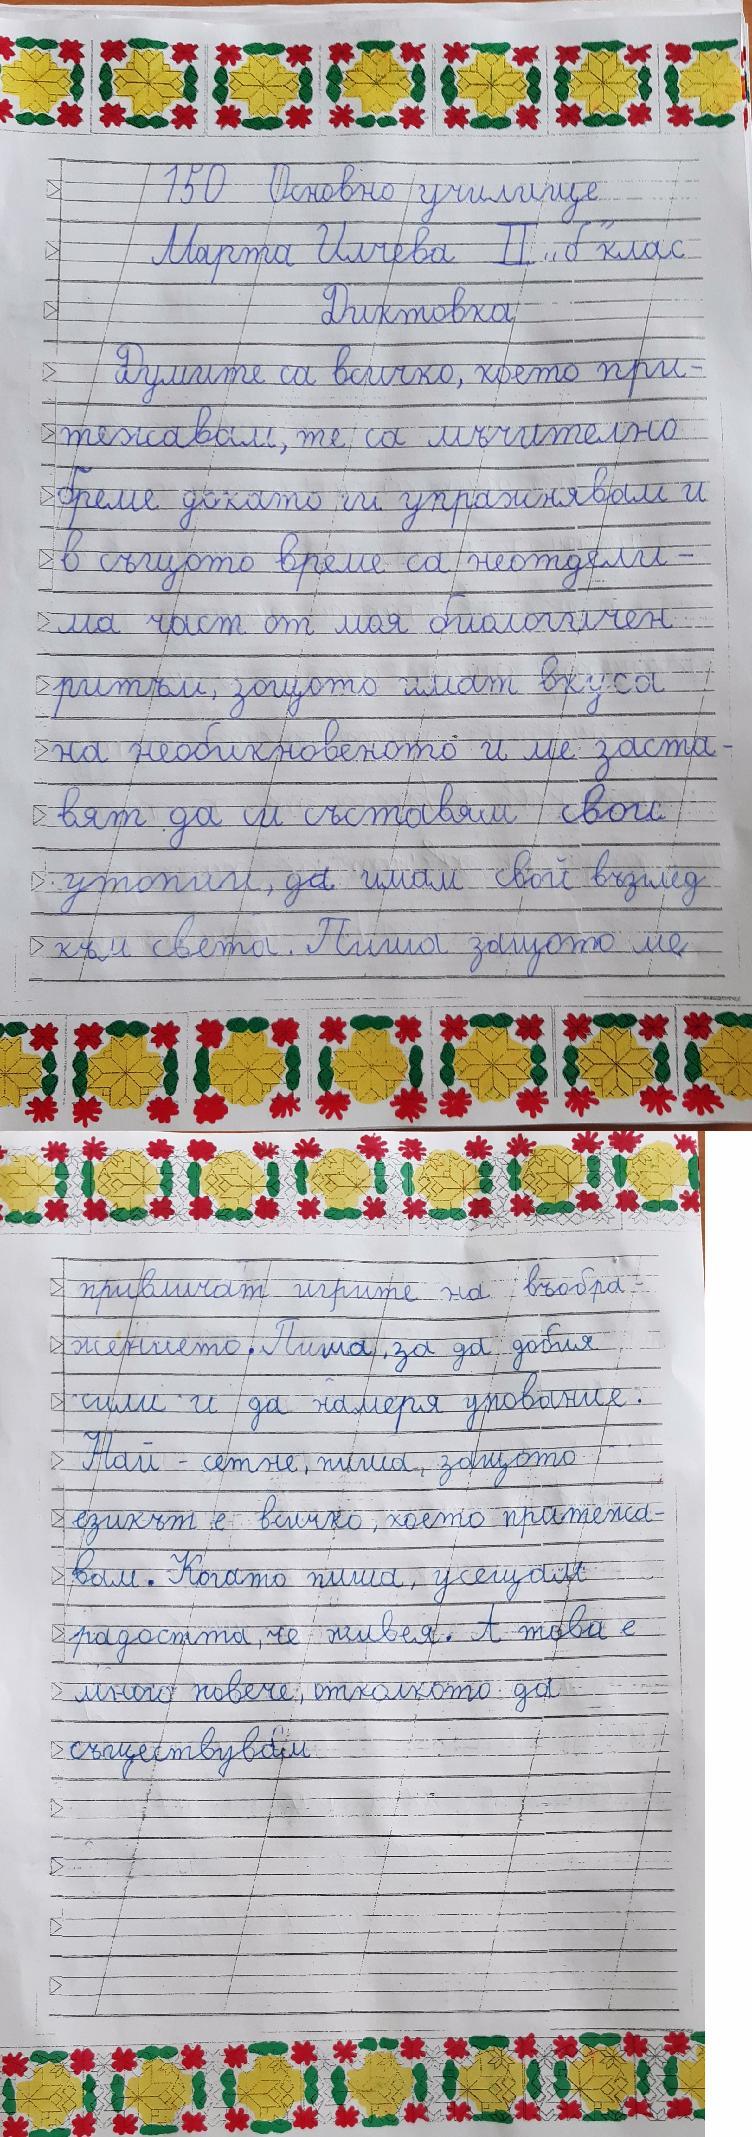 150 Основно училище
Марта Илчева II "б" клас
Диктовка
Думите са всичко, което при-
тежавам, те са мъчително
бреме докато ги упражнявам и
в същото време са неотдели-
ма част от моя биологичен
ритъм, защото имат вкуса
на необикновеното и ме заста-
вят да си съставям свои
утопии, да имам свой възглед
към света. Пиша защото ме
привличат игрите на въобра-
жението. Пиша, за да добия
сили и да намеря упование.
Най - сетне, пиша, защото
езикът е всичко, което притежа-
вам. Когато пиша, усещам
радостта, че живея. А това е
много повече, отколкото да
съществувам